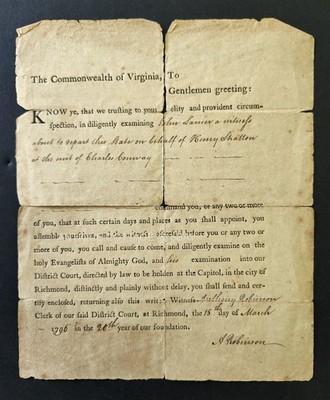 The Commonwealth of Virginia, To
Gentlemen greeting:
KNOW ye, that we trusting to your elity and provident circum-
spection, in diligently examining John Lanier a witness
about to depart this State on behalf of Henry Skelton
at the suit of Charles Conway
mmand you, or any two or more
of you, that at such certain days and places as you shall appoint, you
assemble yourselves, and the witness aforesaid before you or any two or
more of you, you call and cause to come, and diligently examine on the
holy Evangelists of Almighty God, and his examination into our
District Court, directed by law to be holden at the Capitol, in the city of
Richmond, distinctly and plainly without delay, you shall send and cer-
tify enclosed, returning also this writ: Witness Anthony Robinson
Clerk of our said District Court, at Richmond, the 15th day of March
1796 in the 20th year of our foundation.
A Robinson